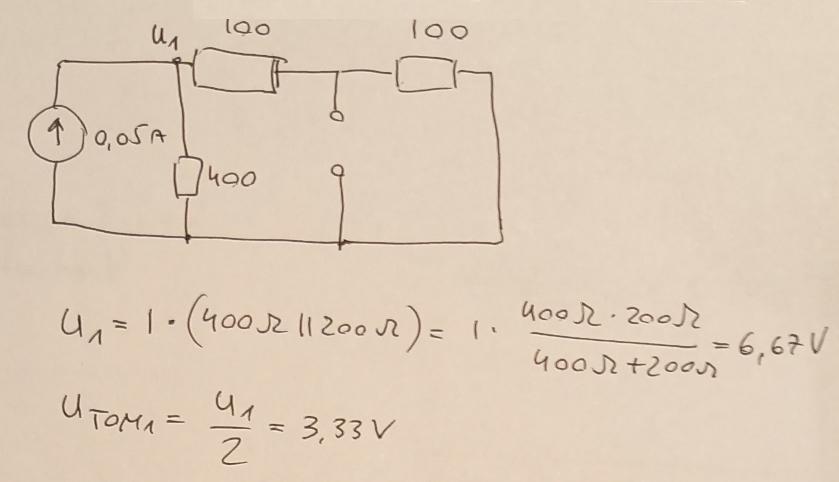 100 100
U₁
0,05A
400
U₁ = I · (400Ω || 200Ω) = I · 400Ω · 200Ω / 400Ω + 200Ω = 6,67V
U_TOM1 = U₁ / 2 = 3,33V